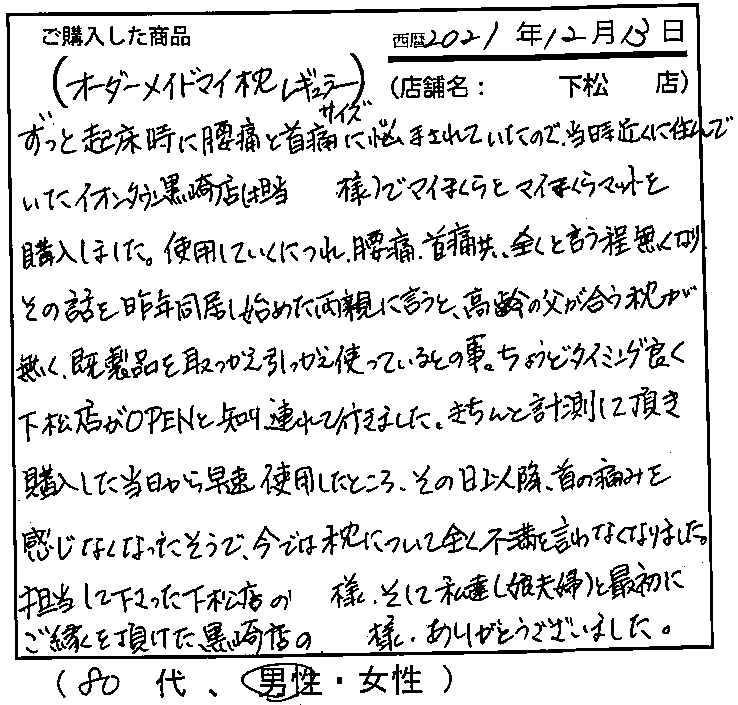 ご購入した商品
西暦2021年12月13日
(オーダーメイドマイ枕レギュラーサイズ)
(店舗名: 下松 店)
ずっと起床時に腰痛と首痛に悩まされていたので、当時近くに住んで
いたイオンタウン黒崎店(担当 様)でマイまくらとマイまくらマットを
購入しました。使用していくにつれ、腰痛、首痛共、全くと言う程無くなり、
その話を昨年同居し始めた両親に言うと、高齢の父が合う枕が
無く、既製品を取っかえ引っかえ使っているとの事。ちょうどタイミング良く
下松店がOPENと知り連れて行きました。きちんと計測して頂き
購入した当日から早速使用したところ、その日以降、首の痛みを
感じなくなったそうで、今では枕について全く不満を言わなくなりました。
担当して下さった下松店の 様、そして私達(娘夫婦)と最初に
ご縁を頂けた、黒崎店の 様、ありがとうございました。
(80 代、男性・女性)